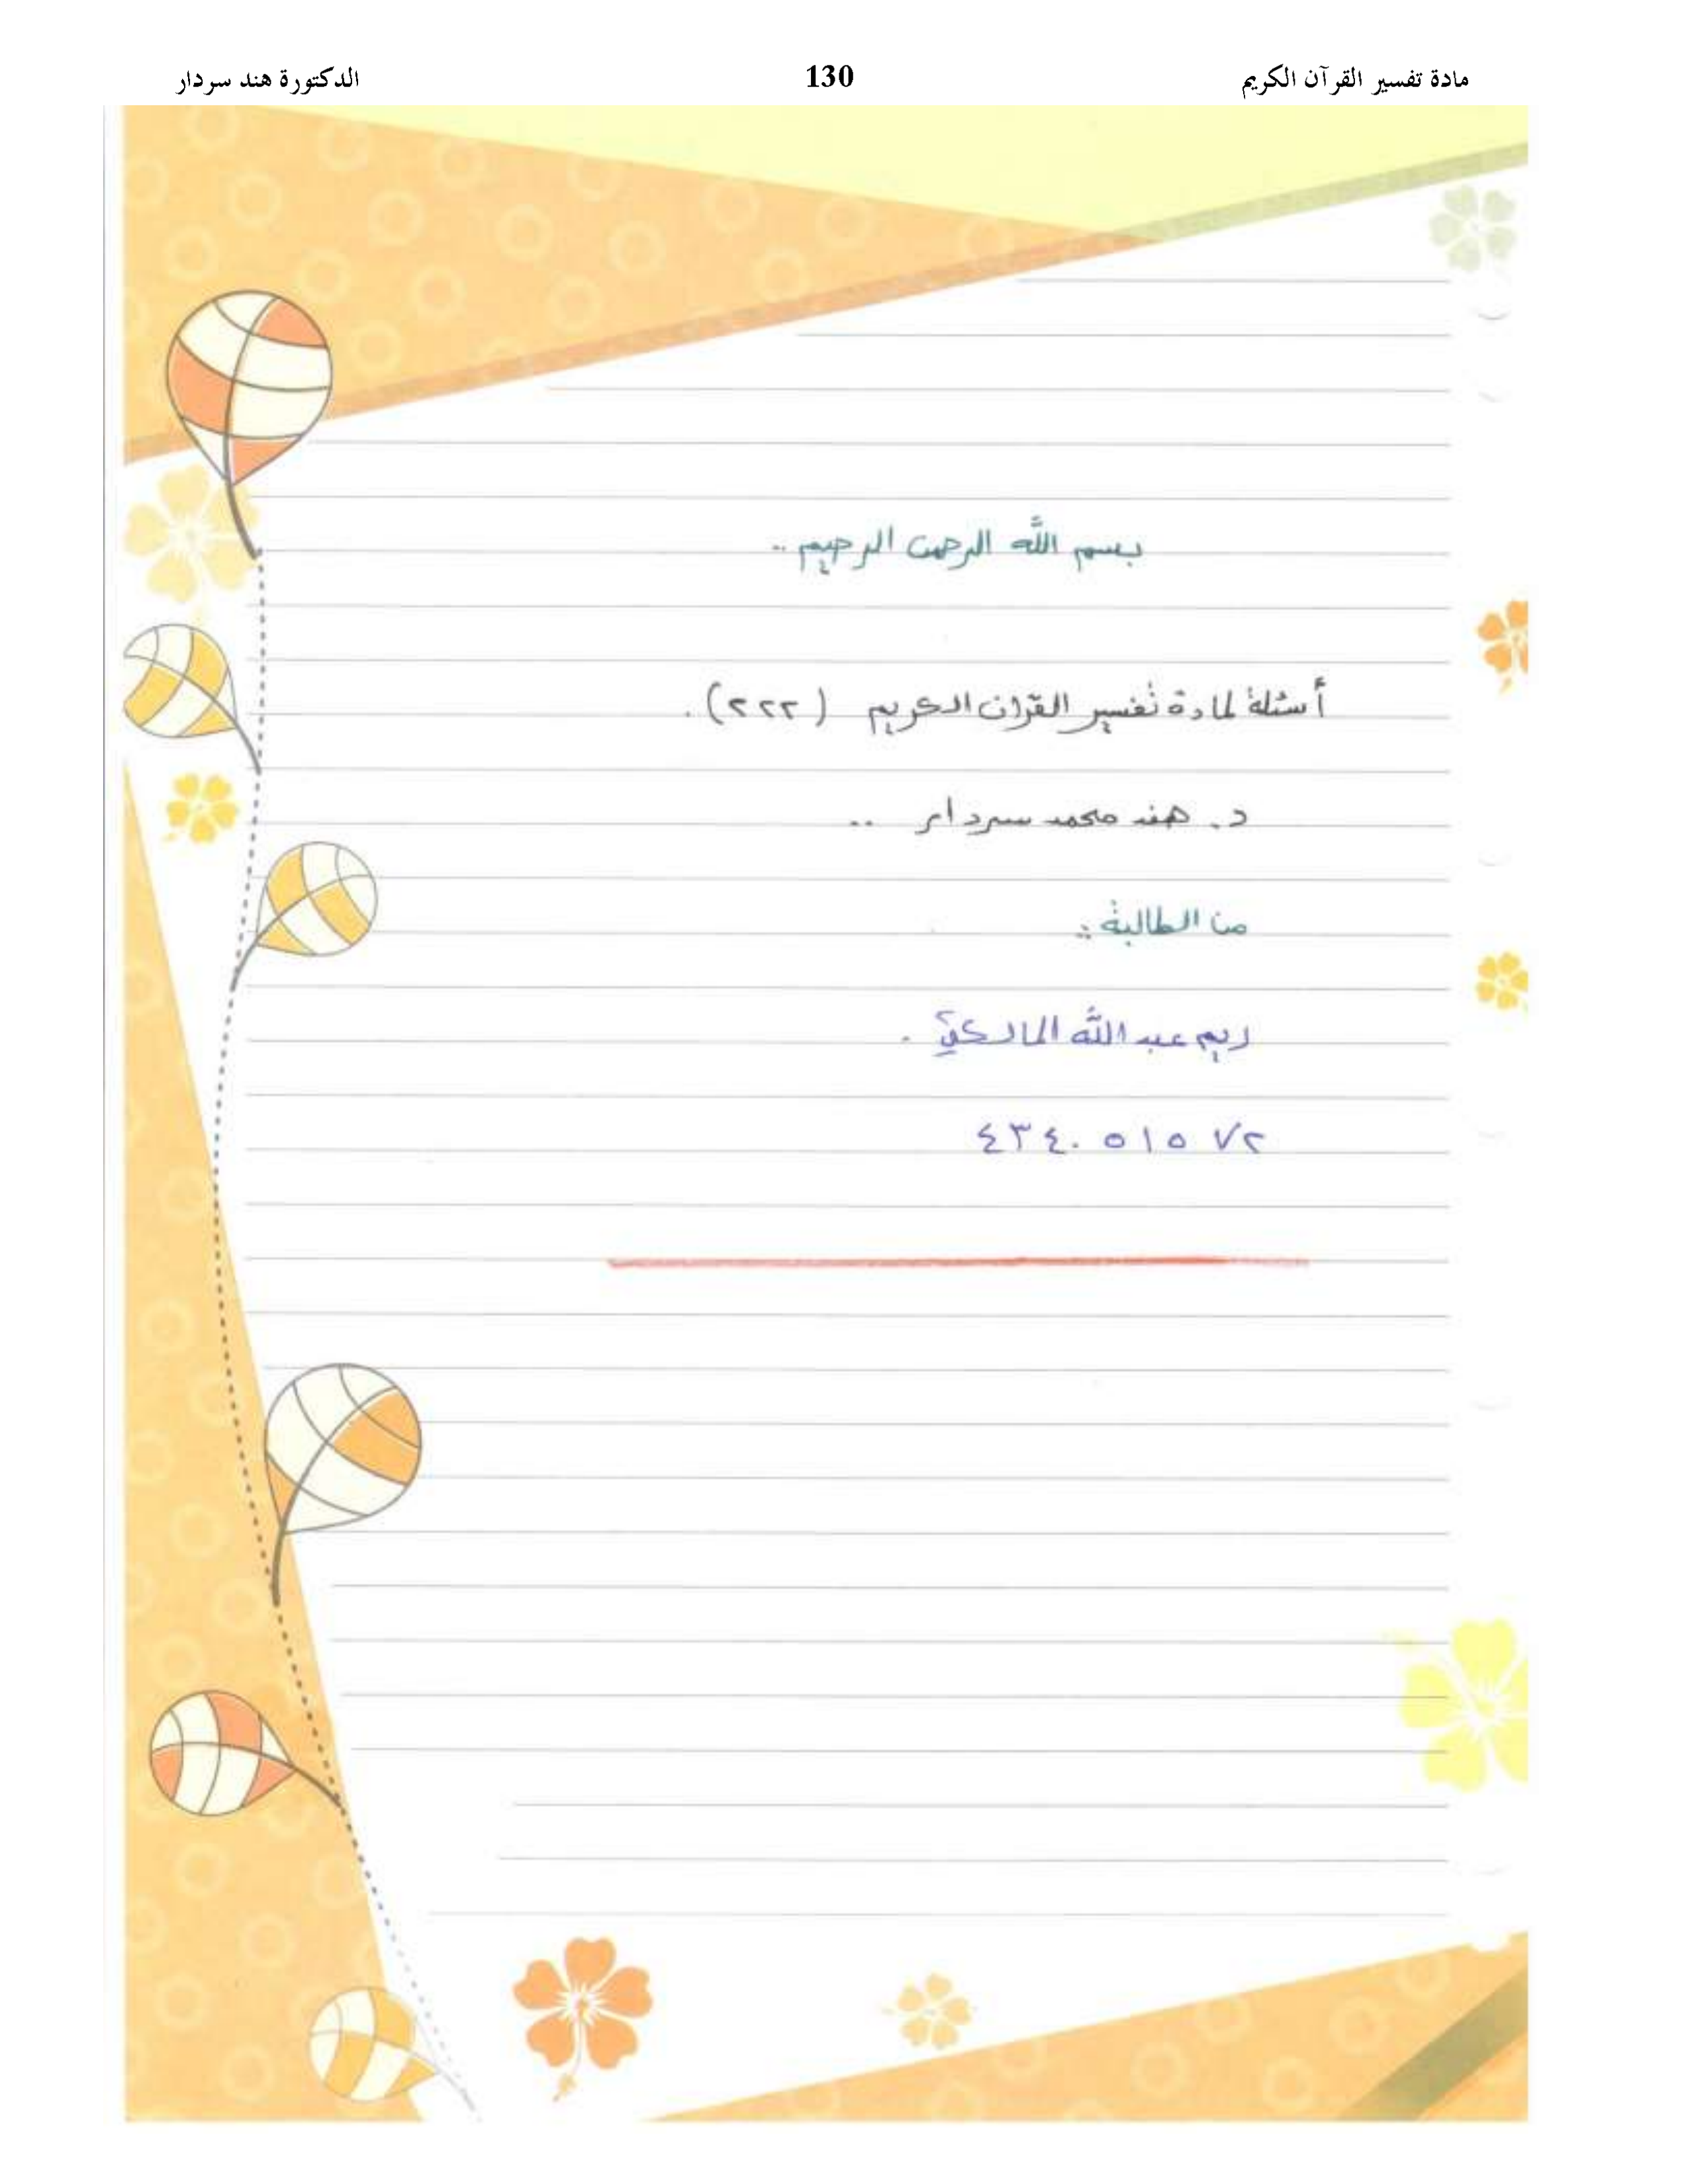 مادة تفسير القرآن الكريم 130 الدكتورة هند سردار
بسم الله الرحمن الرحيم ..
أسئلة لمادة تفسير القرآن الكريم (٢٢٢) .
د. هند محمد سردار ..
من الطالبة :
ريم عبد الله المالكي .
٤٣٤٠٥١٥٧٢